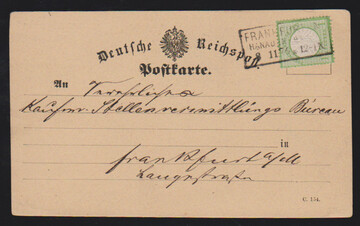 Deutsche Reichspost
Postkarte.
An Verehrliches
Kaufm. Stellenvermittlungs Büreau
in
Frankfurt a/M
Langestraße
C. 154.